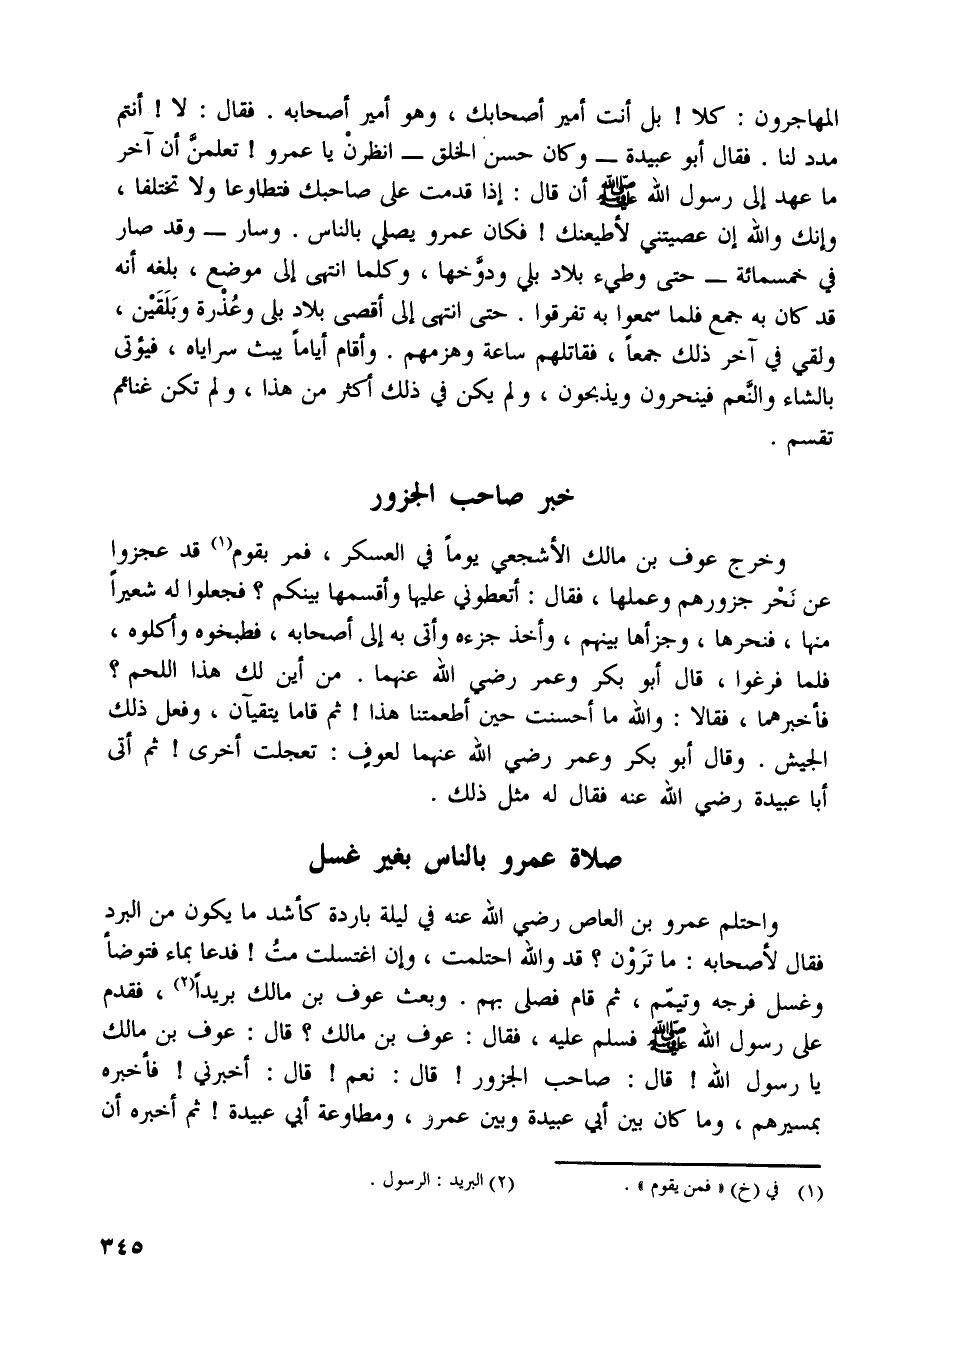 المهاجرون : كلا ! بل أنت أمير أصحابك ، وهو أمير أصحابه . فقال : لا ! أنتم
مدد لنا . فقال أبو عبيدة — وكان حسن الخلق — انظرنْ يا عمرو ! تعلمنَّ أن آخر
ما عهد إلى رسول الله ﷺ أن قال : إذا قدمت على صاحبك فتطاوعا ولا تختلفا ،
وإنك والله إن عصيتني لأطيعنك ! فكان عمرو يصلي بالناس . وسار — وقد صار
في خمسمائة — حتى وطيء بلاد بلي ودوَّخها ، وكلما انتهى إلى موضع ، بلغه أنه
قد كان به جمع فلما سمعوا به تفرقوا . حتى انتهى إلى أقصى بلاد بلي وعُذْرة وبَلَقَيْن ،
ولقي في آخر ذلك جمعاً ، فقاتلهم ساعة وهزمهم . وأقام أياماً يبث سراياه ، فيؤتى
بالشاء والنَّعم فينحرون ويذبحون ، ولم يكن في ذلك أكثر من هذا ، ولم تكن غنائم
تقسم .
خبر صاحب الجزور
وخرج عوف بن مالك الأشجعي يوماً في العسكر ، فمر بقوم(١) قد عجزوا
عن نَحْر جزورهم وعملها ، فقال : أتعطوني عليها وأقسمها بينكم ؟ فجعلوا له شعيراً
منها ، فنحرها ، وجزأها بينهم ، وأخذ جزءه وأتى به إلى أصحابه ، فطبخوه وأكلوه ،
فلما فرغوا ، قال أبو بكر وعمر رضي الله عنهما . من أين لك هذا اللحم ؟
فأخبرهما ، فقالا : والله ما أحسنت حين أطعمتنا هذا ! ثم قاما يتقيآن ، وفعل ذلك
الجيش . وقال أبو بكر وعمر رضي الله عنهما لعوفٍ : تعجلت أخرى ! ثم أتى
أبا عبيدة رضي الله عنه فقال له مثل ذلك .
صلاة عمرو بالناس بغير غسل
واحتلم عمرو بن العاص رضي الله عنه في ليلة باردة كأشد ما يكون من البرد
فقال لأصحابه : ما تَرَوْن ؟ قد والله احتلمت ، وإن اغتسلت متُّ ! فدعا بماء فتوضأ
وغسل فرجه وتيمّم ، ثم قام فصلى بهم . وبعث عوف بن مالك بريداً(٢) ، فقدم
على رسول الله ﷺ فسلم عليه ، فقال : عوف بن مالك ؟ قال : عوف بن مالك
يا رسول الله ! قال : صاحب الجزور ! قال : نعم ! قال : أخبرني ! فأخبره
بمسيرهم ، وما كان بين أبي عبيدة وبين عمرو ، ومطاوعة أبي عبيدة ! ثم أخبره أن
(١) في (خ) « فمن يقوم » . (٢) البريد : الرسول .
٣٤٥